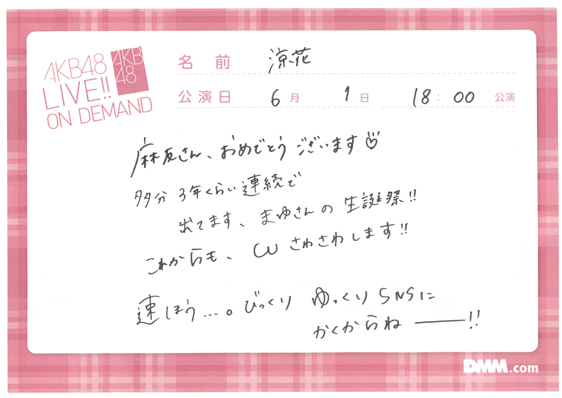 AKB48
LIVE!!
ON DEMAND
AKB
48
名前 涼花
公演日 6月 1日 18:00 公演
麻友さん、おめでとうございます♡
多分 3年くらい連続で
出てます、まゆさんの生誕祭!!
これからも、ω さわさわします!!
速ほう...。びっくり ゆっくりSNSに
かくからね ――!!
DMM.com